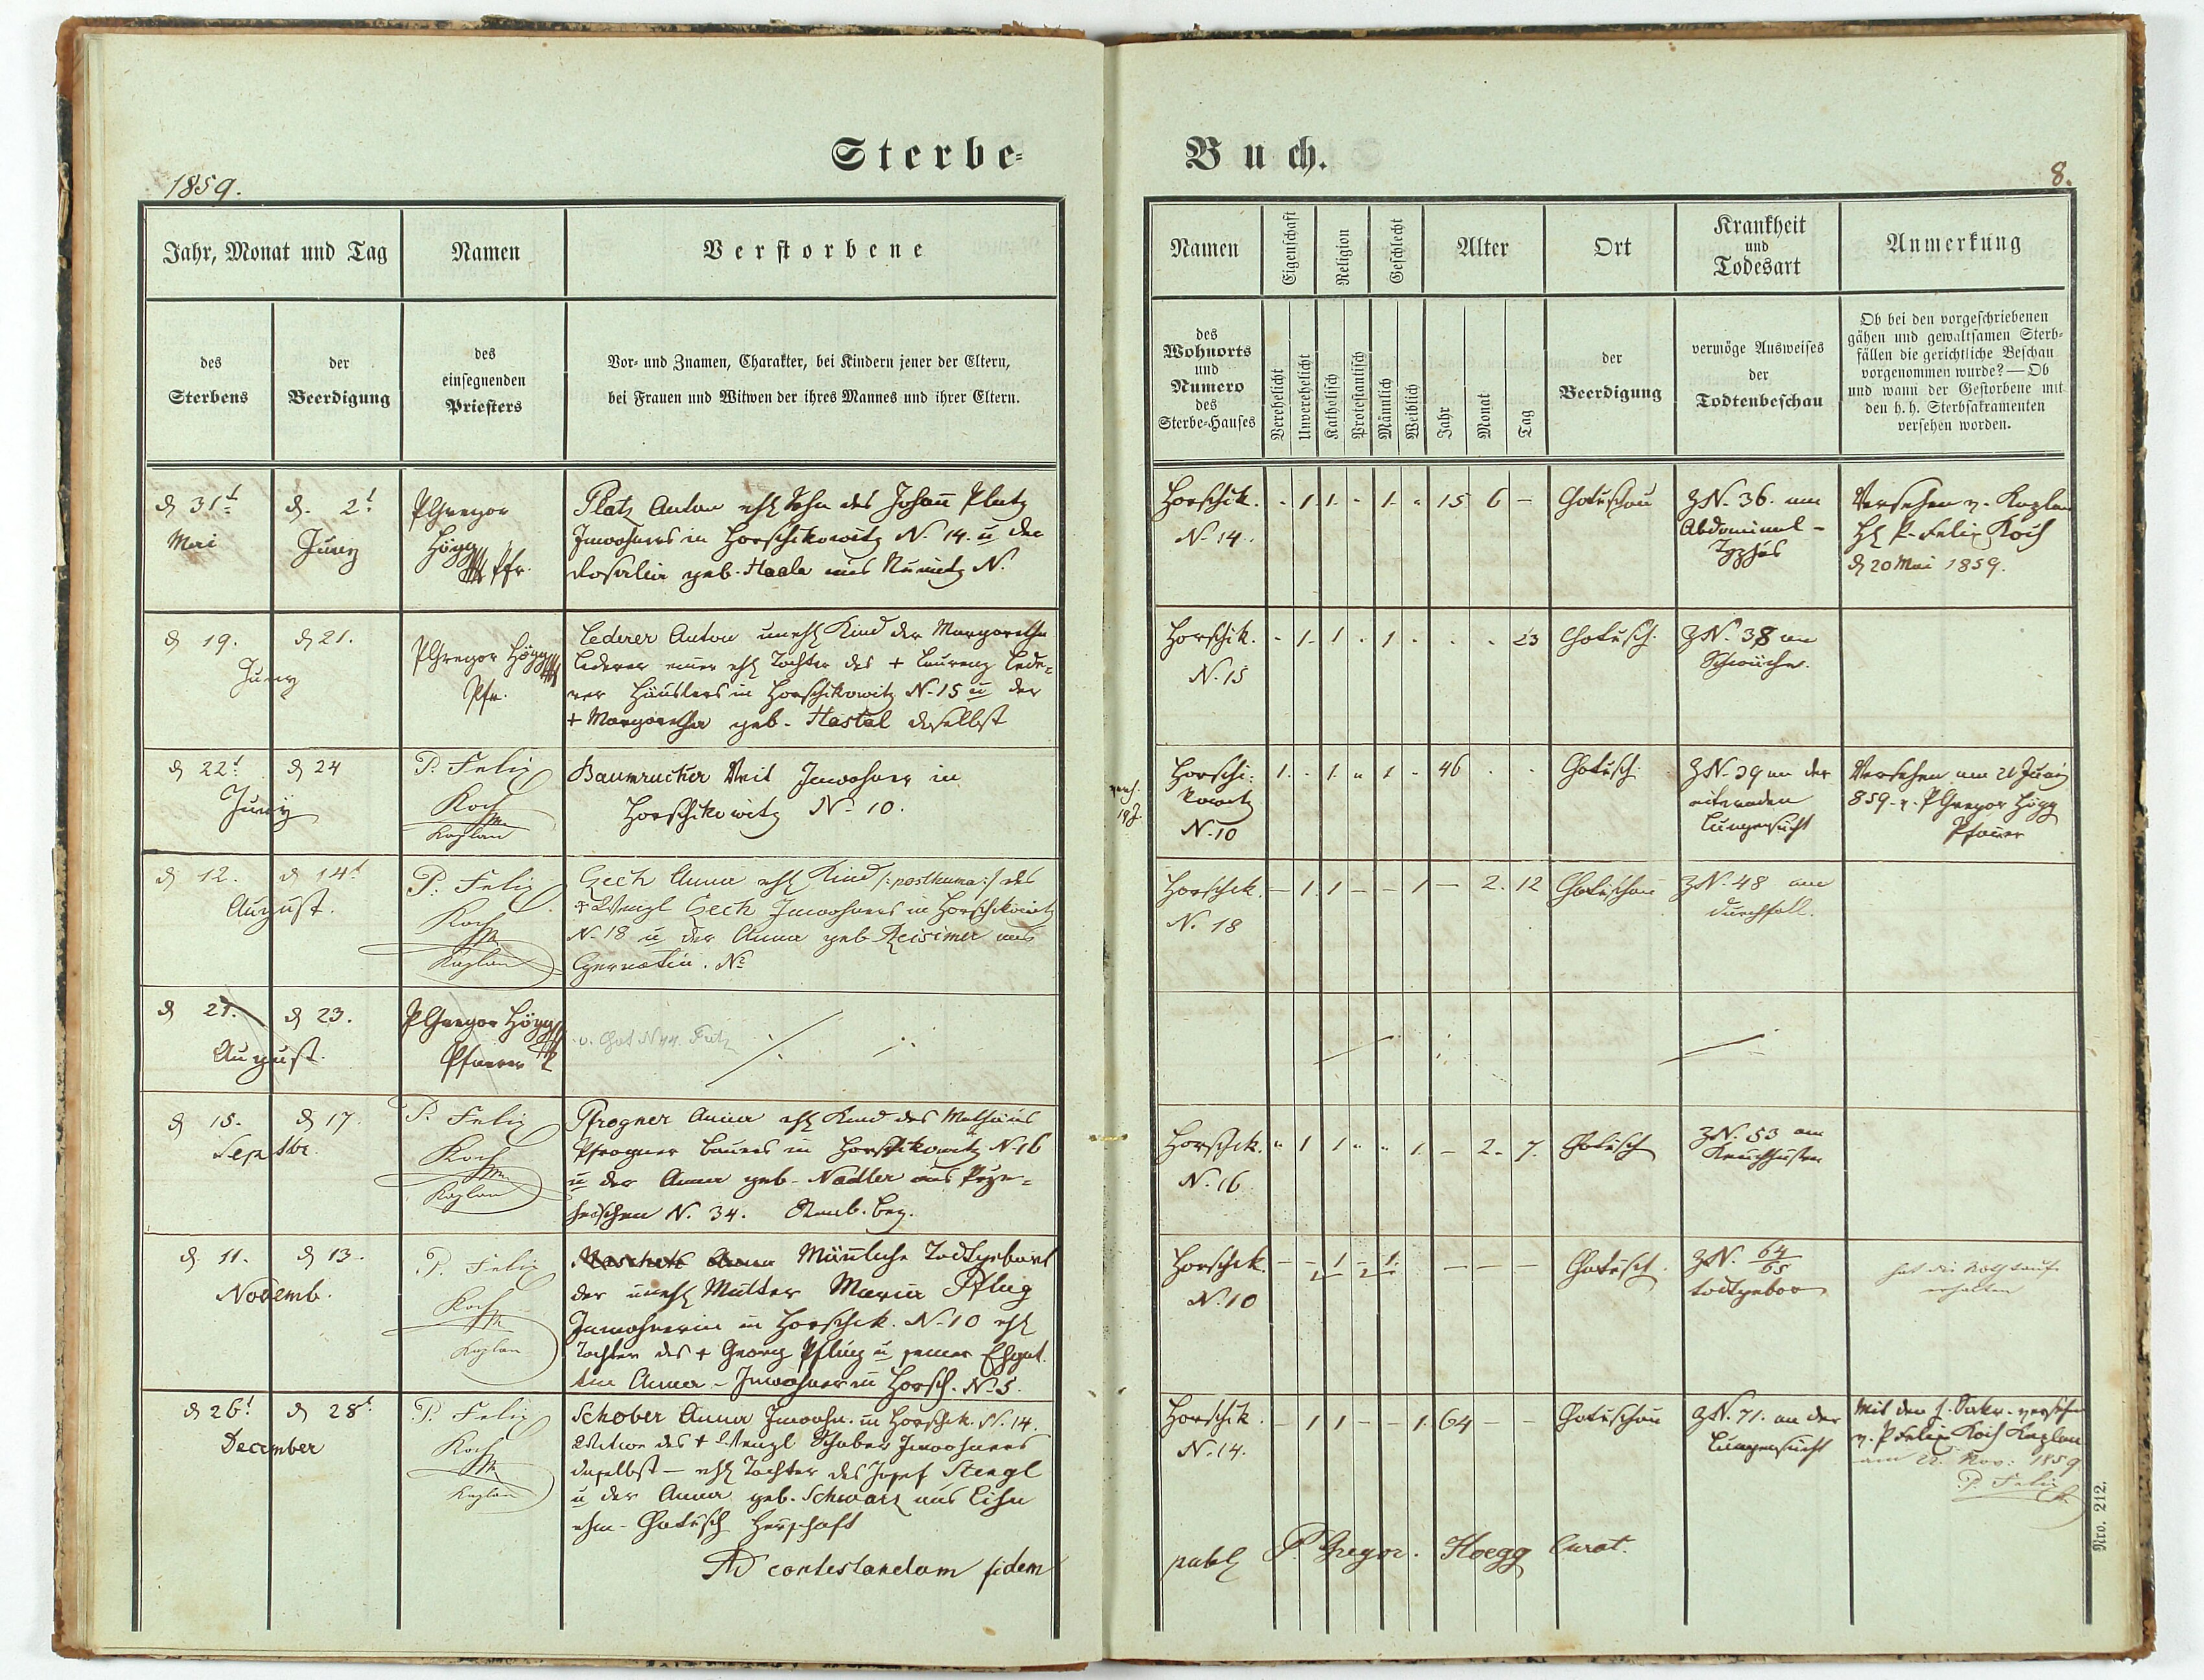 Sterbe-
Buch.
1859.
8.
Jahr, Monat und Tag
Namen
Verstorbene
des
Sterbens
der
Beerdigung
des
einsegnenden
Priesters
Vor- und Znamen, Charakter, bei Kindern jener der Eltern,
bei Frauen und Witwen der ihres Mannes und ihrer Eltern.
Namen
Eigenschaft
Religion
Geschlecht
Alter
Ort
Krankheit
und
Todesart
Anmerkung
des
Wohnorts
und
Numero
des
Sterbe-Hauses
Verehelicht
Unverehelicht
Katholisch
Protestantisch
Männlich
Weiblich
Jahr
Monat
Tag
der
Beerdigung
vermöge Ausweises
der
Todtenbeschau
Ob bei den vorgeschriebenen
gähen und gewaltsamen Sterb-
fällen die gerichtliche Beschau
vorgenommen wurde? — Ob
und wann der Gestorbene mit
den h. h. Sterbsakramenten
versehen worden.
d 31t
Mai
d. 2t
Juny
P Gregor
Högg
Pfr.
Platz Anton ehl Sohn des Johañ Platz
Inwohners in Horschikowitz N. 14. u der
Rosalia geb. Haala aus N.
Horschik.
N. 14.
- 1 1 - 1 - 15 6 -
Chotischau
ZN. 36. am
Abdominal-
Typhus
Versehen v. Kaplan
H P. Felix Koch
d 20 Mai 1859.
d 19.
d 21.
Juny
P Gregor Högg
Pfr.
Lederer Anton unehl Kind der Margaretha
Lederer einer ehl Tochter des + Laurenz Lede-
rer Häuslers in Horschikowitz N. 15 u der
+ Margaretha geb. Hastal daselbst
Horschik.
N. 15
- 1 1 - 1 - - - 23
Chotisch.
ZN. 38 an
Schwäche.
d 22t
d 24
Juny
P. Felix
Koch
Kaplan
Baumrucker Veit Inwohner in
Horschikowitz N. 10.
Horschi-
kowitz
N. 10
1 - 1 - 1 - 46 - -
Chotisch.
ZN. 39 an der
eiternden
Lungensucht
Versehen am 21 Juny
859. v. P Gregor Högg
Pfarrer
d 12.
d 14t
August.
P. Felix
Koch
Kaplan
Czech Anna ehl Kind /: posthuma :/ des
+ Wenzl Czech Inwohners in Horschikowitz
N. 18 u der Anna geb Reisimer aus
Horschik.
N. 18
- 1 1 - - 1 - 2. 12
Chotischau
ZN. 48 am
Durchfall.
d 21.
d 23.
August.
P Gregor Högg
Pfarrer
v. Chot N 44. Fritz
d 15.
d 17.
Septbr.
P. Felix
Koch
Kaplan
Pfrogner Anna ehl Kind des Mathäus
Pfrogner Bauers in Horschikowitz N. 16
u der Anna geb. Nadler aus
N. 34.
Horschik.
N. 16
- 1 1 - - 1 - 2. 7.
Chotisch
ZN. 53 am
Keuchhusten
d. 11.
d 13.
Novemb.
P. Felix
Koch
Kaplan
Mäñliche Todtgeburt
der unehl Mutter Maria Pflug
Inwohnerin in Horschik. N. 10 ehl
Tochter des + Georg Pflug u seiner Ehegat-
tin Anna - Inwohner in Horsch. N. 5.
Horschik.
N. 10
Chotisch.
ZN. 64/65
todtgebor
hat die Nothtaufe
erhalten
d 26t
d 28t
December
P. Felix
Koch
Kaplan
Schober Anna Inwohn. in Horschik. N. 14.
Witwe des + Wenzl Schober Inwohners
daselbst - ehl Tochter des Josef Stengl
u der Anna geb. Schwarz aus
Chotisch Herschaft
Horschik.
N. 14.
- 1 1 - - 1 64 - -
Chotischau
ZN. 71. an der
Lungensucht
Mit den h. Sakr. versehen
v. P Felix Koch Kaplan
am 22. Nov: 1859
P. Felix
Ad contestandam fidem
P. Gregor. Hoegg Curat.
Nro. 212.